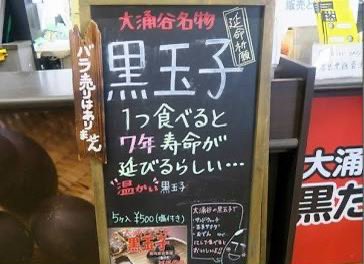 大涌谷名物
延命祈願
黒玉子
1つ食べると
7年寿命が
延びるらしい…
"温かい"黒玉子
5ヶ入 ¥500(塩付き)
バラ売りはありません
黒玉子
大涌谷の黒玉子で
・サンドウィッチ
・おでん
大涌
黒た
販売と